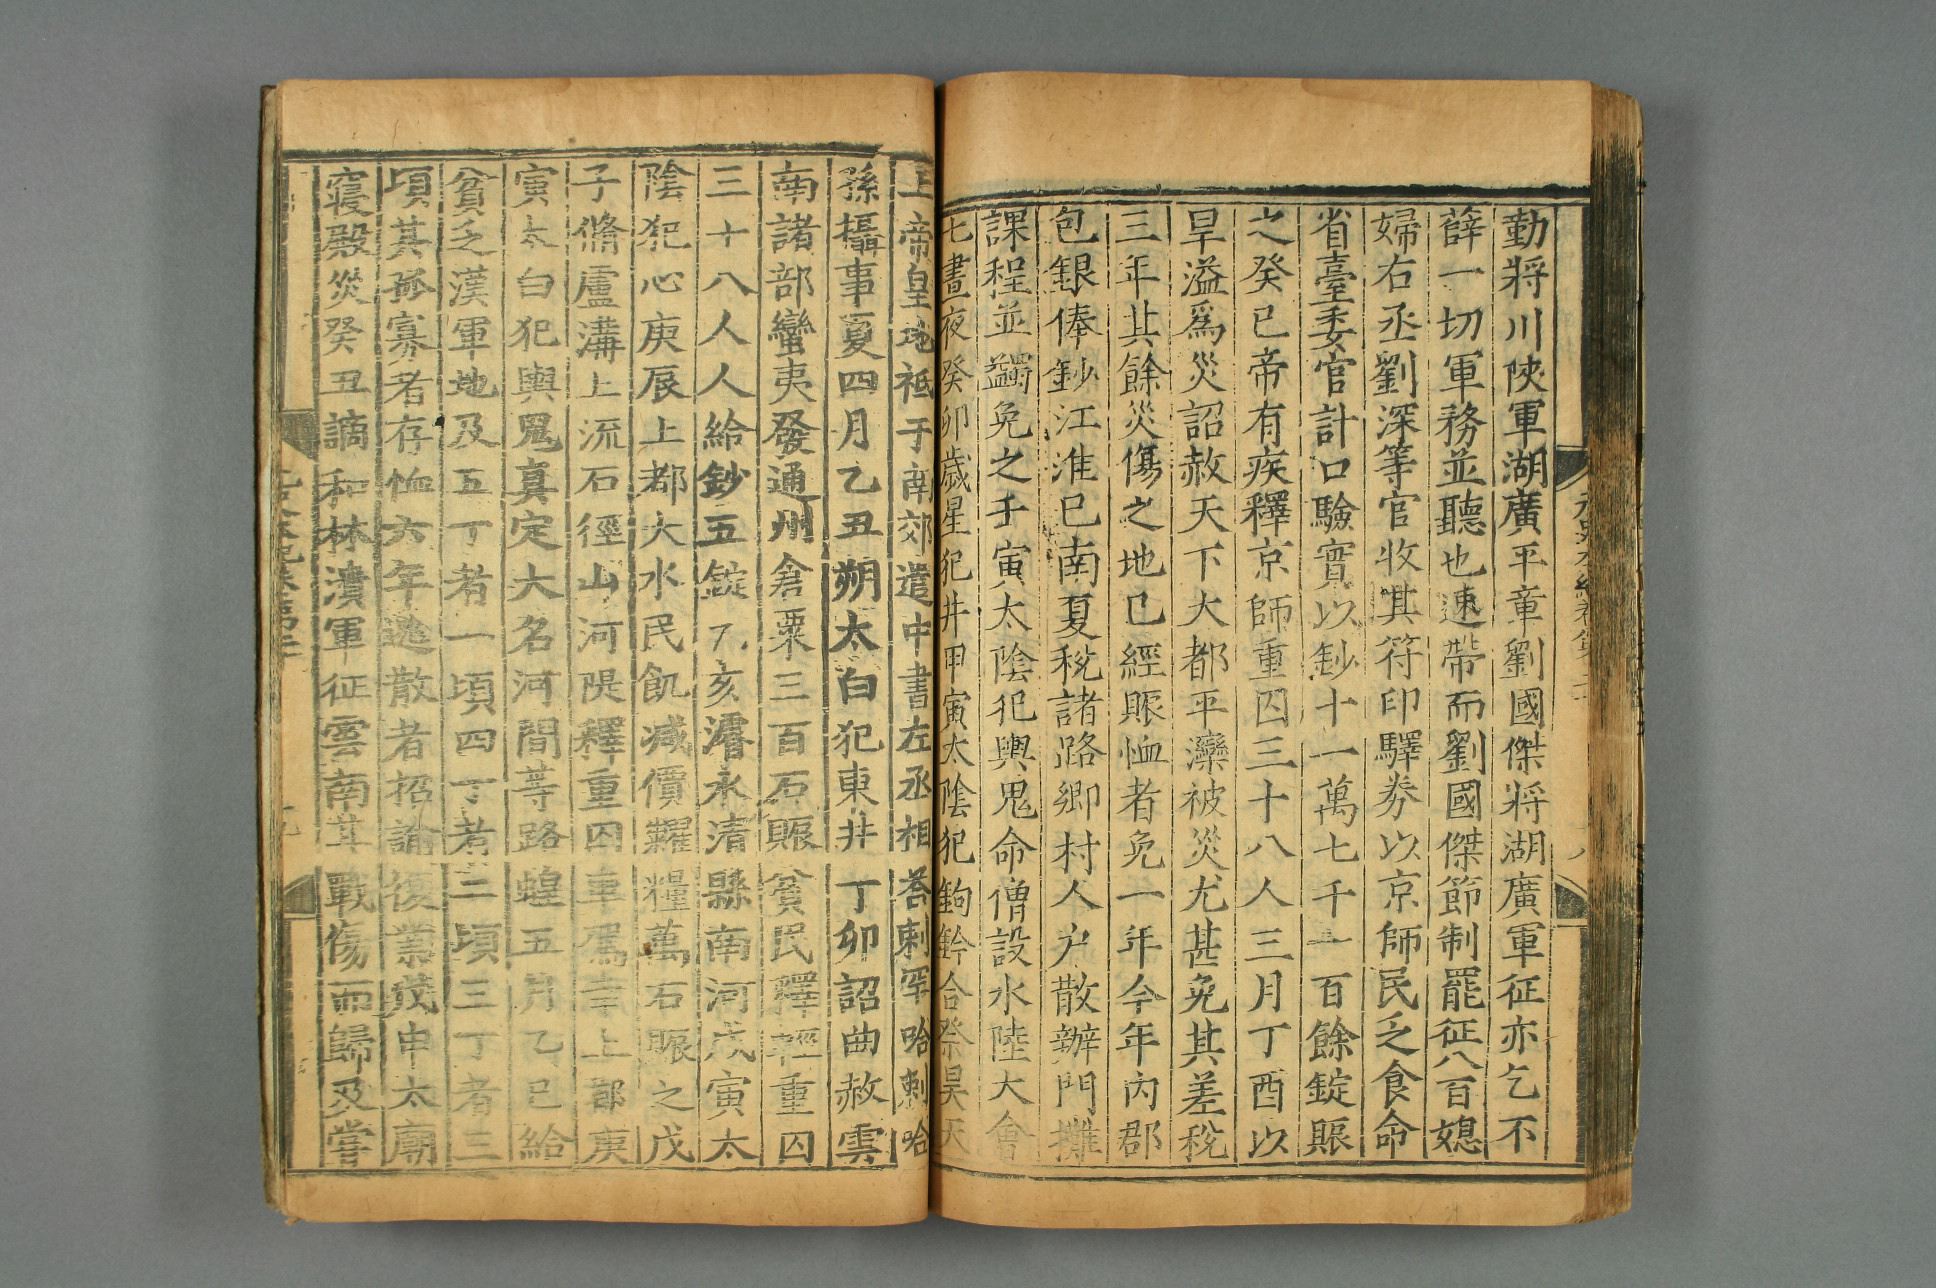 勤將川陝軍湖廣平章劉國傑將湖廣軍征亦乞不
薛一切軍務並聽也速帶而劉國傑節制罷征八百媳
婦右丞劉深等官收其符印驛券以京師民乏食命
省臺委官計口驗實以鈔十一萬七千一百餘錠賑
之癸巳帝有疾釋京師重囚三十八人三月丁酉以
旱溢爲災詔赦天下大都平灤被災尤甚免其差稅
三年其餘災傷之地已經賑恤者免一年今年內郡
包銀俸鈔江淮已南夏稅諸路鄉村人戶散辦門攤
課程並蠲免之壬寅太陰犯輿鬼命僧設水陸大會
七晝夜癸卯歲星犯井甲寅太陰犯鉤鈐合祭昊天
上帝皇地祗于南郊遣中書左丞相荅剌罕哈剌哈
孫攝事夏四月乙丑朔太白犯東井丁卯詔曲赦雲
南諸部蠻夷發通州倉粟三百石賑貧民釋輕重囚
三十八人人給鈔五錠乃亥濬永清縣南河戊寅太
陰犯心庚辰上都大水民飢減價糶糧萬石賑之戊
子脩盧溝上流石徑山河隄釋重囚車駕幸上都庚
寅太白犯輿鬼真定大名河間等路蝗五月乙巳給
貧乏漢軍地及五丁者一頃四丁者二頃三丁者三
頃其孤寡者存恤六年逃散者招諭復業戊申太廟
寢殿災癸丑謫和林潰軍征雲南其戰傷而歸及嘗